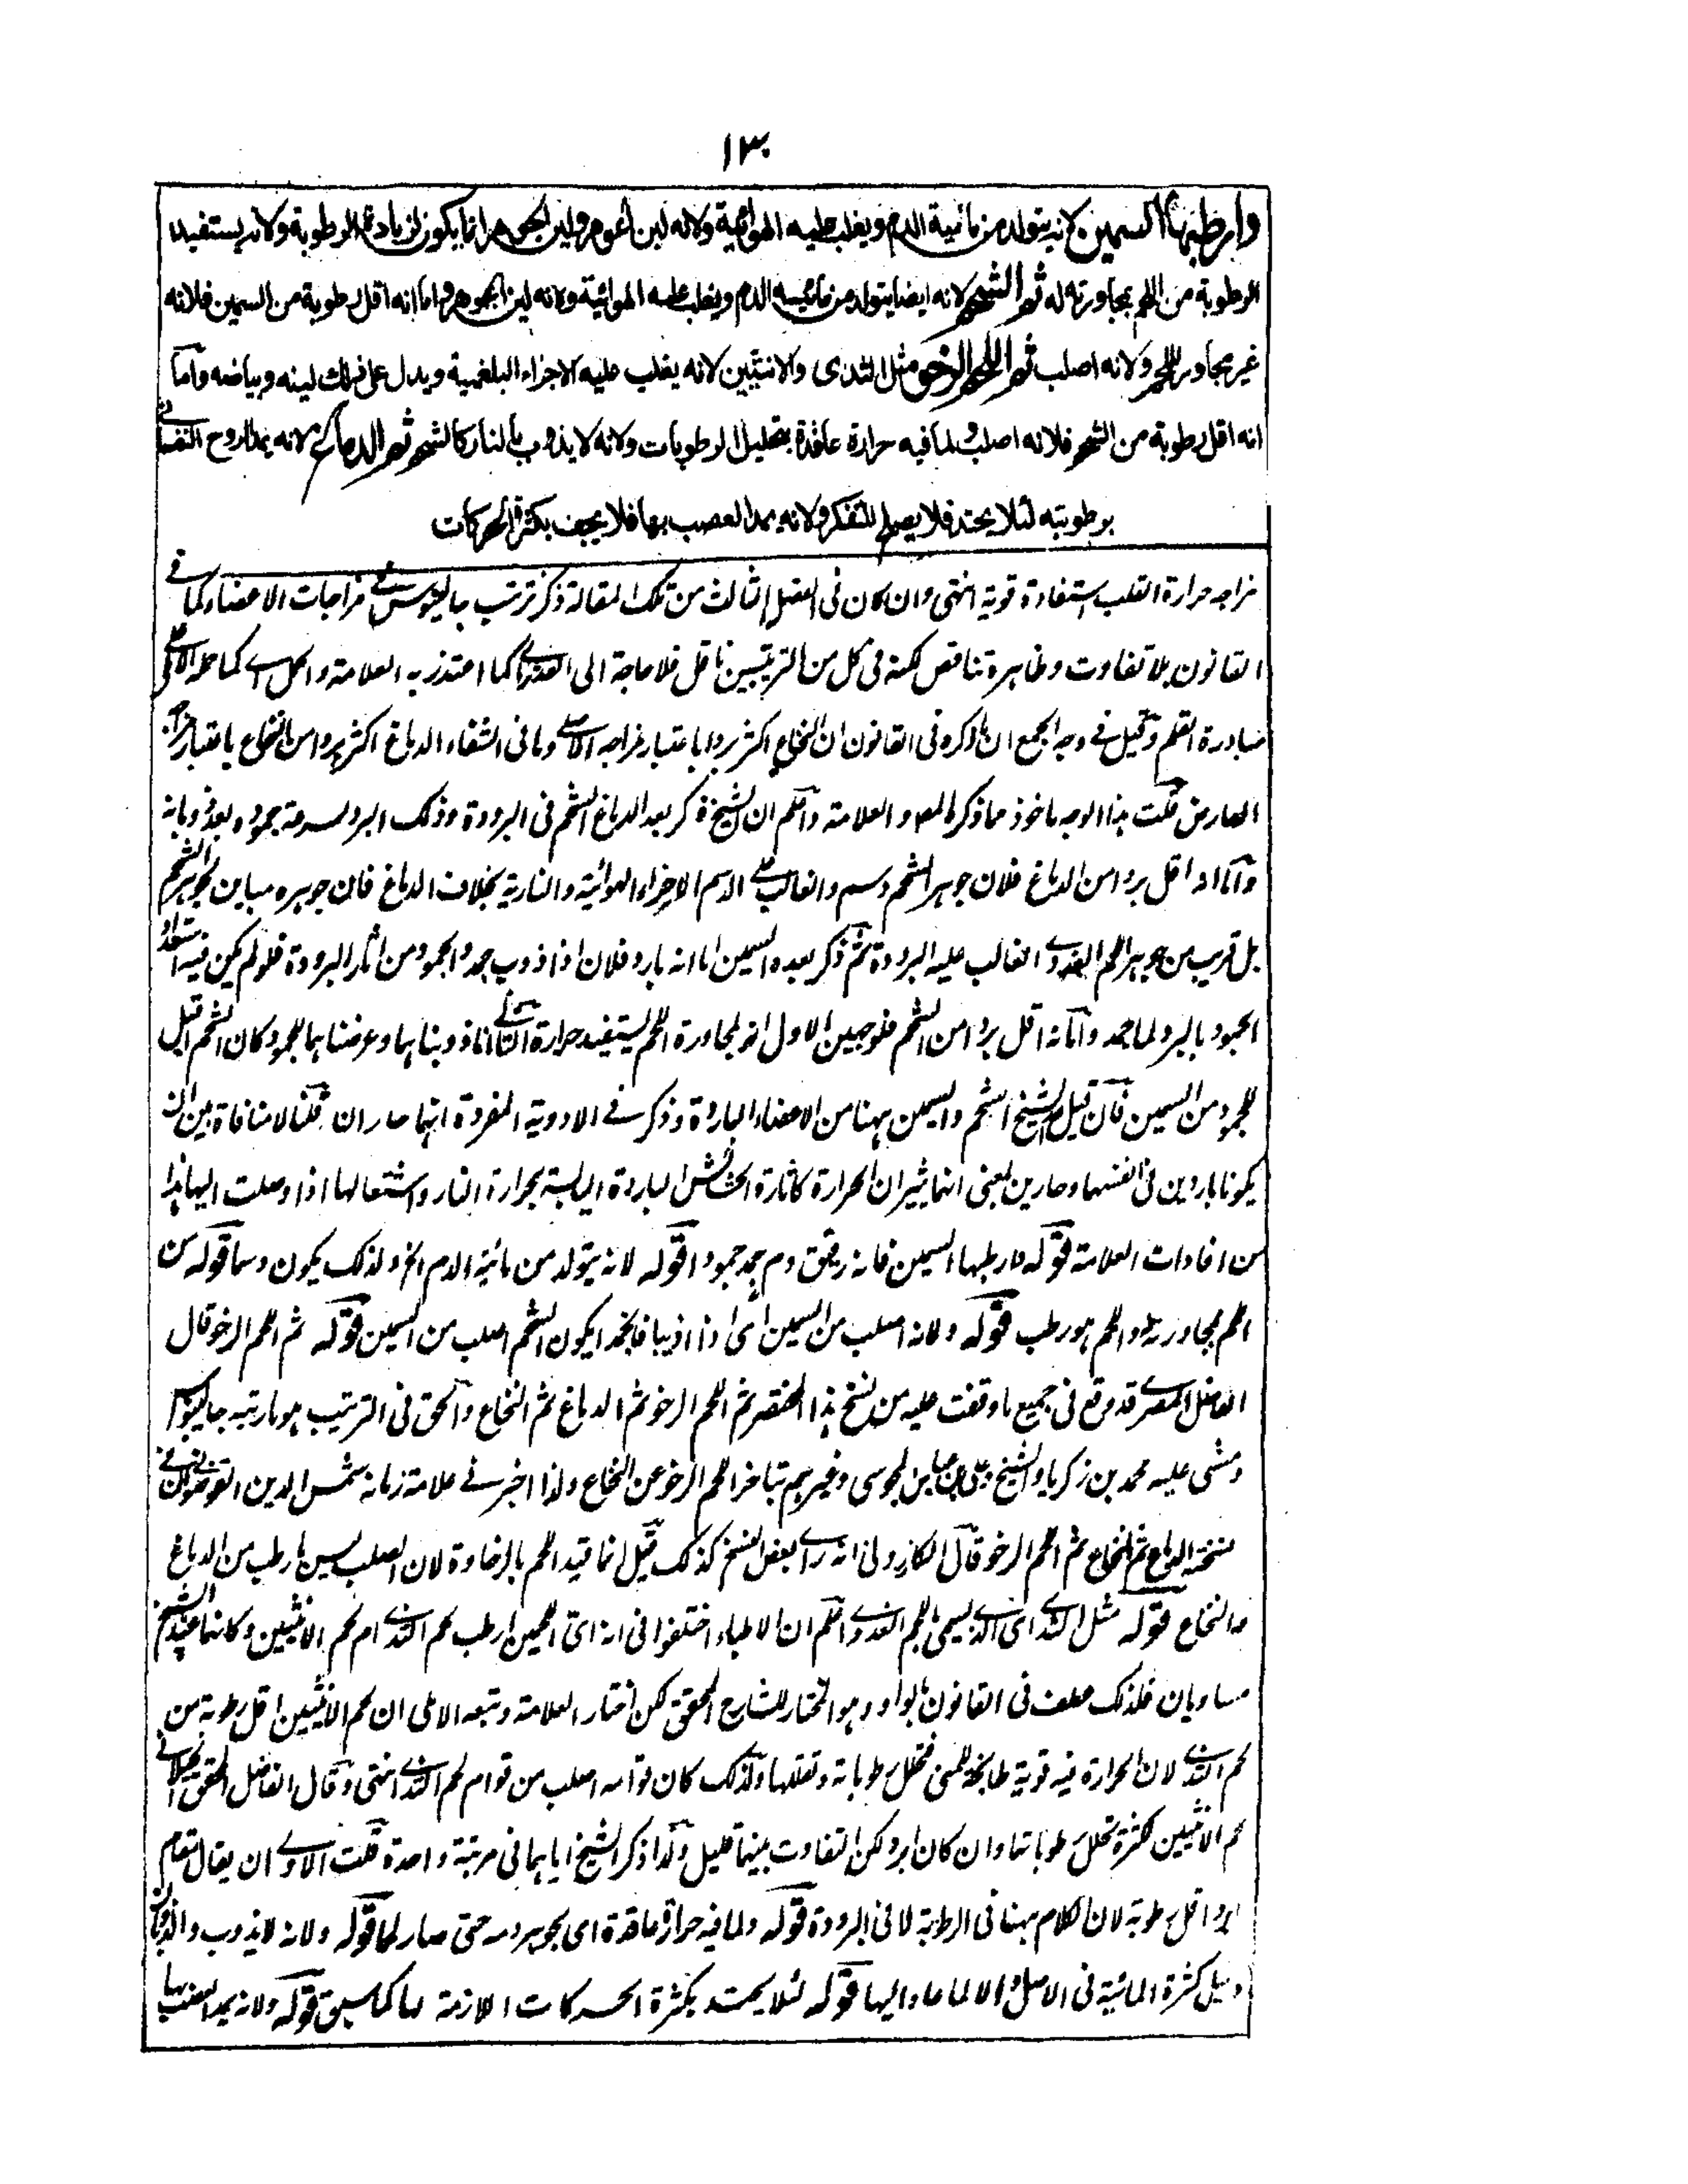 ١٣
وارطبها السمين لانه يتولد من مائية الدم ويغلب عليه الهوائية ولانه لين الجوهر ولين الجوهر انما يكون لزيادة الرطوبة ولانه يستفيد
الرطوبة من اللحم بمجاورته له ثم الشحم لانه ايضا يتولد من مائية الدم ويغلب عليه الهوائية ولانه لين الجوهر واما انه اقل رطوبة من السمين فلانه
غير مجاور للحم ولانه اصلب ثم اللحم الرخو مثل الثدى والانثيين لانه يغلب عليه الاجزاء البلغمية ويدل على ذلك لينه وبياضه واما
انه اقل رطوبة من الشحم فلانه اصلب ولما فيه حرارة عاقدة بتحليل الرطوبات ولانه لا يذوب بالنار كالشحم ثم الدماغ لانه يمد الروح النفسانى
برطوبته لئلا يحتد فلا يصلح للتفكر ولانه يمد العصب بها فلا يجف بكثرة الحركات
مزاجه حرارة القلب استفادة قوية انتهى وان كان فى الفصل الثالث من تلك المقالة ذكر ترتيب جالينوس فى مزاجات الاعضاء كما فى
القانون بلا تفاوت وظاهره تناقض لكنه فى كل من الترتيبين ناقل فلا حاجة الى العذر كما اعتذر به العلامة والحمل كما حمله الآملى
مبادرة القلم وقيل فى وجه الجمع ان ما ذكره فى القانون ان النخاع اكثر بردا باعتبار مزاجه الاصلى وما فى الشفاء الدماغ اكثر بردا من النخاع باعتبار مزاجه
العارض قلت هذا الوجه ماخوذ مما ذكره المص والعلامة واعلم ان الشيخ ذكر بعد الدماغ الشحم فى البرودة وذلك البرد لسرعة جموده بعد ذوبانه
واما انه اقل بردا من الدماغ فلان جوهر الشحم دسم والغالب على الدسم الاجزاء الهوائية والنارية بخلاف الدماغ فان جوهره مباين لجوهر الشحم
بل قريب من جوهر اللحم الغددى الغالب عليه البرودة ثم ذكر بعده السمين اما انه بارد فلان اذا ذوب جمد والجمود من اثار البرودة فلو لم يكن فيه استعداد
الجمود بالبرد لما جمد واما انه اقل بردا من الشحم فلوجهين الاول انه لمجاورة اللحم يستفيد حرارة الثانى انا اذا ذوبناهما وعرضناهما للجمود كان الشحم اقبل
للجمود من السمين فان قيل الشيخ الشحم والسمين ههنا من الاعضاء الباردة وذكر فى الادوية المفردة انهما حاران قلنا لا منافاة بين ان
يكونا باردين فى انفسهما وحارين بمعنى انهما يثيران الحرارة كاثارة الحشائش الباردة اليابسة بحرارة النار واشتعالها اذا وصلت اليها هذا
من افادات العلامة قوله وارطبها السمين فانه رقيق دم يجمد جمودا قوله لانه يتولد من مائية الدم الخ ولذلك يكون دسما قوله من
اللحم بمجاورته له واللحم هو رطب قوله ولانه اصلب من السمين اى اذا اذيبا فانجمدا يكون الشحم اصلب من السمين قوله ثم اللحم الرخو قال
الفاضل المصرى قد وقع فى جميع ما وقفت عليه من نسخ هذا المختصر ثم اللحم الرخو ثم الدماغ ثم النخاع والحق فى الترتيب هو ما رتبه جالينوس
ومشى عليه محمد بن زكريا والشيخ وعلى بن عباس المجوسى وغيرهم بتاخر اللحم الرخو عن النخاع ولذا اخبرنى علامة زمانه شمس الدين
نسخة الدماغ ثم النخاع ثم اللحم الرخو قال الكازرونى انه راى بعض النسخ كذلك قيل انما قيد اللحم بالرخاوة لان الصلب ليس بارطب من الدماغ
والنخاع قوله مثل الثدى اى الذى يسمى باللحم الغددى واعلم ان الاطباء اختلفوا فى انه اى اللحمين ارطب لحم الثدى ام لحم الانثيين وكانهما عند الشيخ
مساويان فلذلك عطف فى القانون بالواو وهو المختار للشارح المحقق لكن اختار العلامة وتبعه الآملى ان لحم الانثيين اقل رطوبة من
لحم الثدى لان الحرارة فيه قوية طابخة للمنى فتحلل رطوباته وتقللها ولذلك كان قوامه اصلب من قوام لحم الثدى انتهى وقال الفاضل المحقق الجيلانى
لحم الانثيين لكثرة تحلل رطوباتها وان كان ابرد لكن التفاوت بينهما قليل ولذا ذكر الشيخ اياهما فى مرتبة واحدة قلت الاولى ان يقال مقام
ابرد اقل رطوبة لان الكلام ههنا فى الرطوبة لا فى البرودة قوله ولما فيه حرارة عاقدة اى بجوهر دمه حتى صار لحما قوله ولانه لا يذوب والذوبان
دليل كثرة المائية فى الاصل والا لما عاد اليها قوله لئلا يحتد بكثرة الحركات اللازمة لها كما سبق قوله ولانه يمد العصب بها